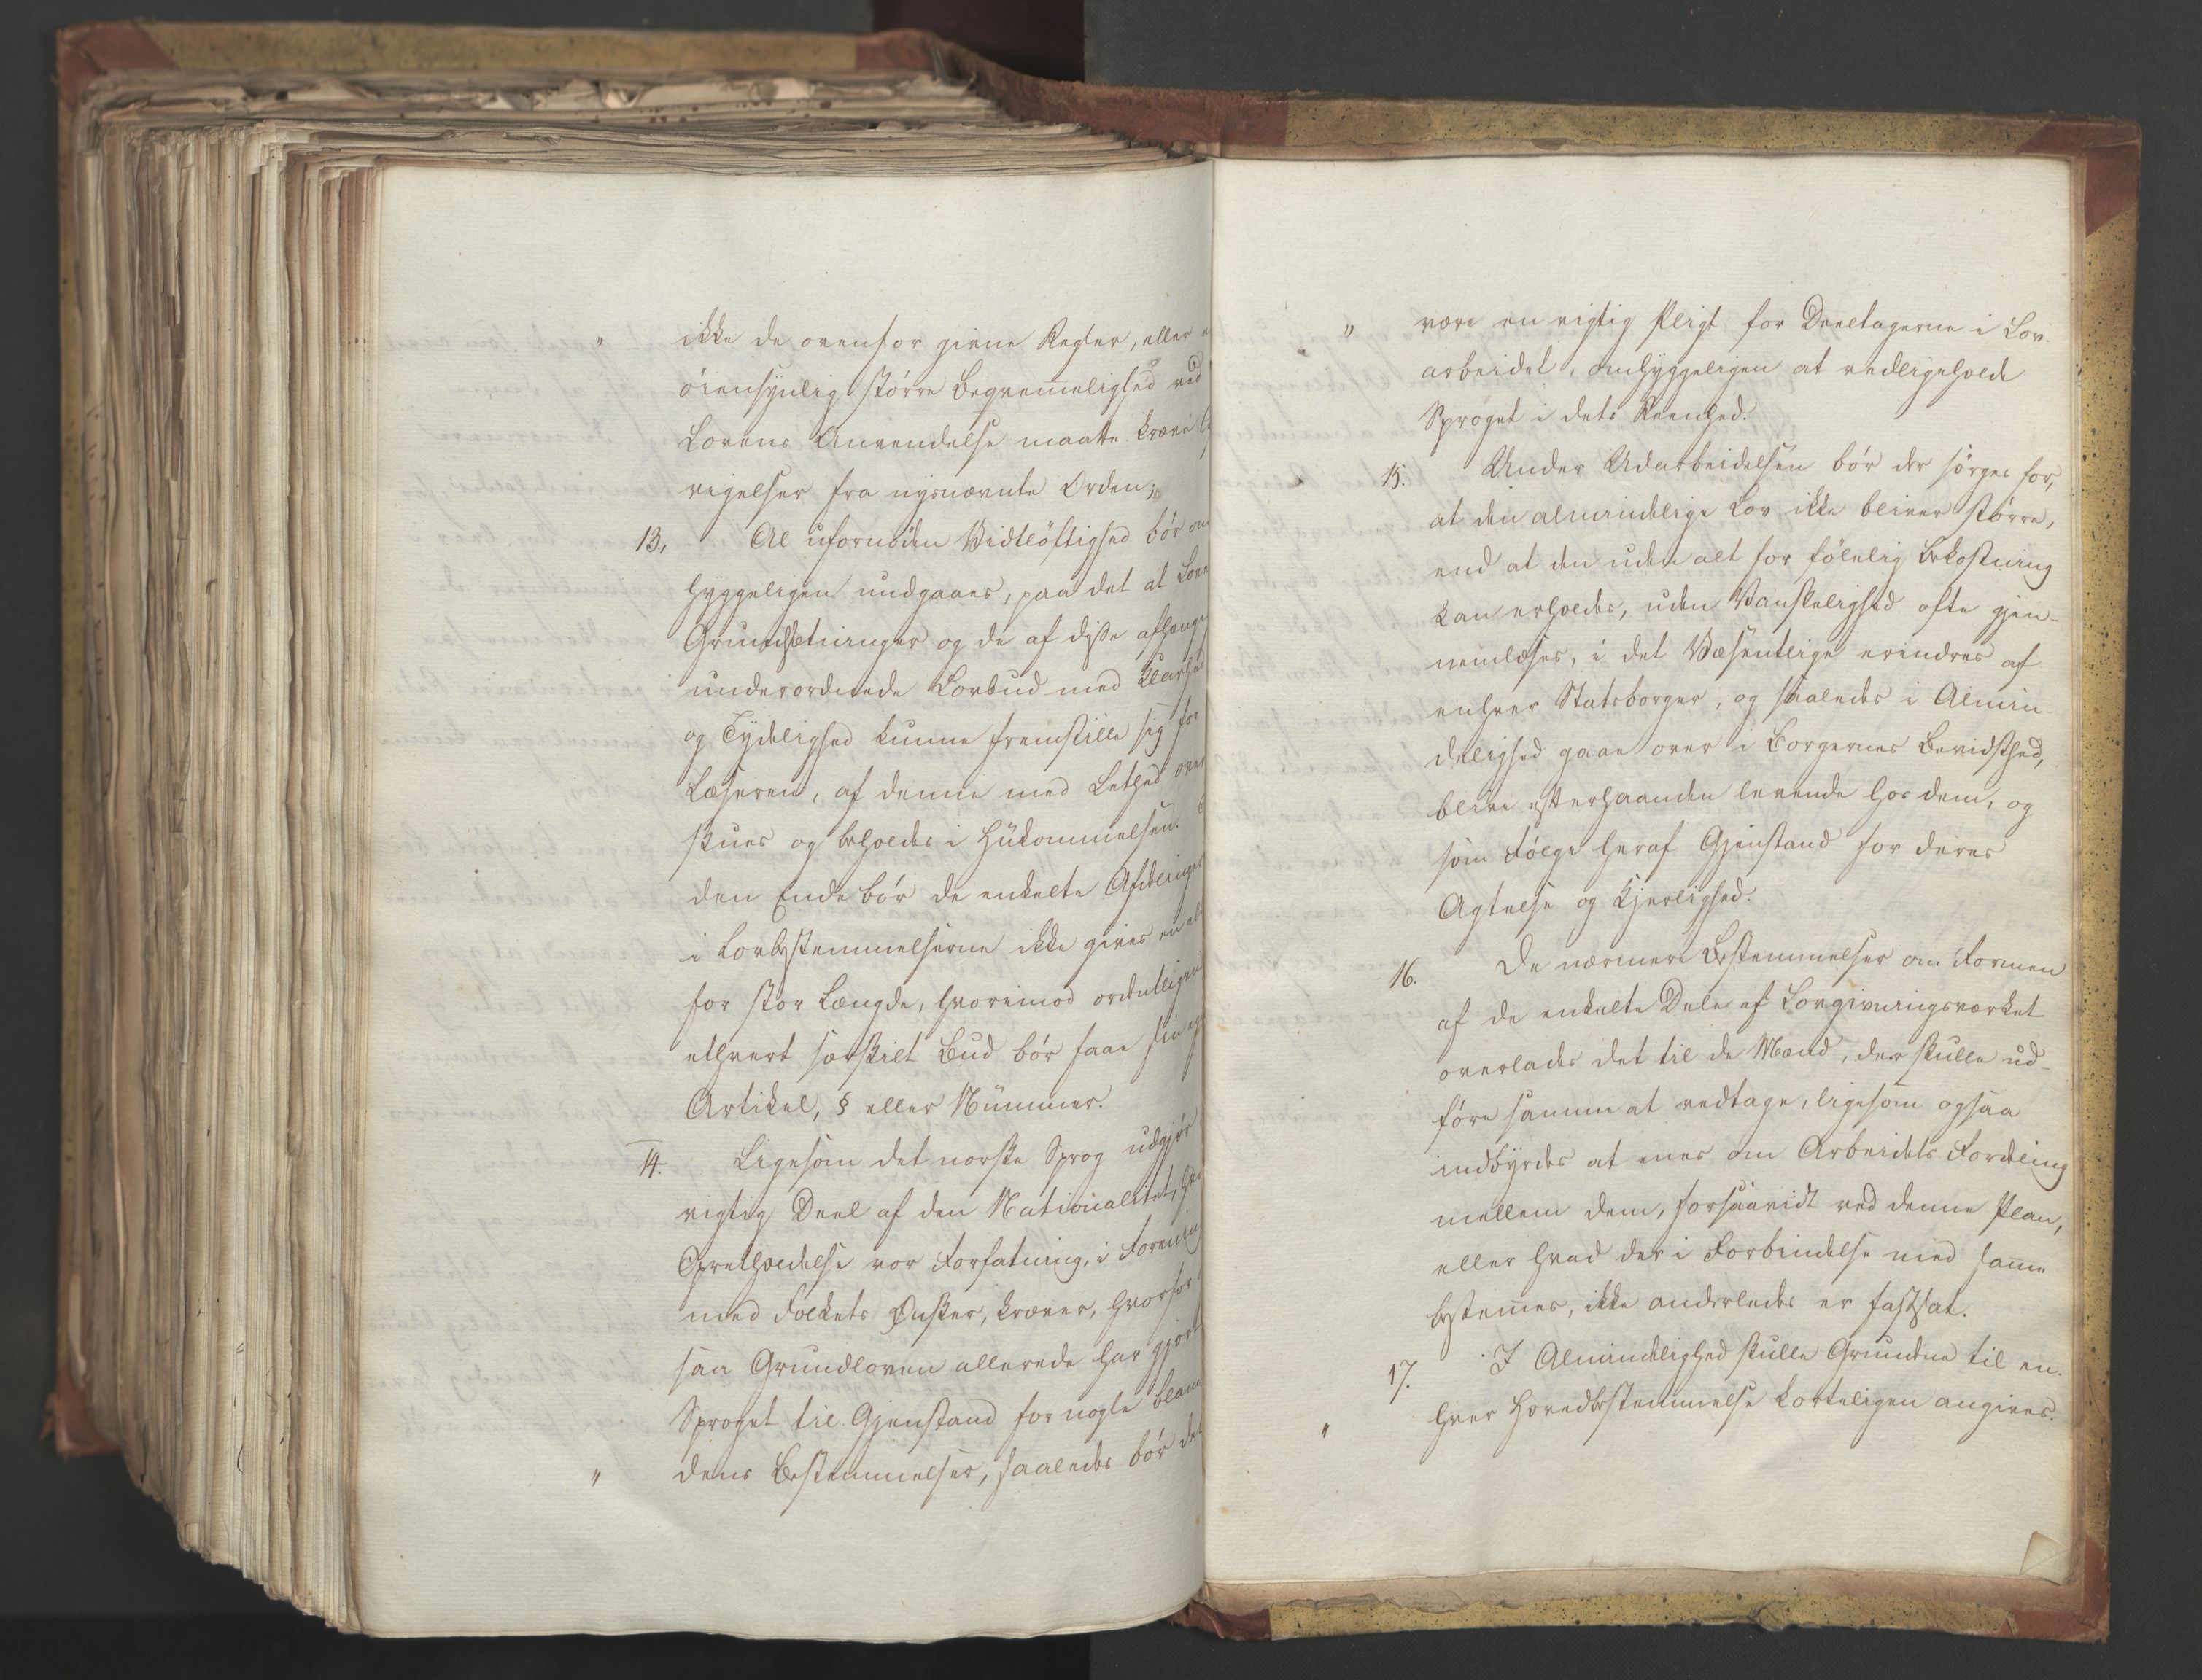 " ikke de ovenfor givne Regler, eller e
öiensynlig större Beqvemmelighed ved
Lovens Anvendelse maatte kræve 
vigelser fra nysnævnte Orden;
13., Al ufornöden Vidtlöftighed bör om
hyggeligen undgaaes, paa det at Love
Grundsetninger og de af disse afhæng
underordnede Lovbud med Klarhed
og Tydelighed kunne fremstille sig for
Læseren, af denne med Lethed over
skues og beholdes i Hukommelsen.
den Ende bör de enkelte Afdelinger
i Lovbestemmelserne ikke gives en alt
for stor Længde, hvorimod ordentligvis
ethvert særskilt Bud bör faae sin eg
Artikel, § eller Nummer.
14. Ligesom det norske Sprog udgjör
vigtig Deel af den Nationalitet, hvis
Opretholdelse vor Forfatning, i Forening
med Folkets Ønsker, kræver, hvorfor
saa Grundloven allerede har gjort
Sproget til Gjenstand for nogle blan
" dens Bestemmelser, saaledes bör det
" være en vigtig Pligt for Deeltagerne i Lov-
arbeidet, omhyggeligen at vedligeholde
Sproget i dets Reenhed.
15. Under Udarbeidelsen bör der sörges for,
at den almindelige Lov ikke bliver större,
end at den uden alt for fölelig Bekostning
kan erholdes, uden Vanskelighed ofte gjen-
nemlæses, i det Væsentlige erindres af
enhver Statsborger, og saaledes i Almin-
delighed gaae over i Borgernes Bevidsthed,
blive efterhaanden levende hos dem, og
som Fölge heraf Gjenstand for deres
Agtelse og Kjerlighed.
16. De nærmere Bestemmelser om Formen
af de enkelte Dele af Lovgivningsværket
overlades det til de Mænd, der skulle ud-
före samme at vedtage, ligesom ogsaa
indbyrdes at enes om Arbeidets Fordeling
mellem dem, forsaavidt ved denne Plan,
eller hvad der i Forbindelse med samme
bestemmes, ikke anderledes er fastsat.
17. I Almindelighed skulle Grundene til en-
" hver Hovedbestemmelse korteligen angives.